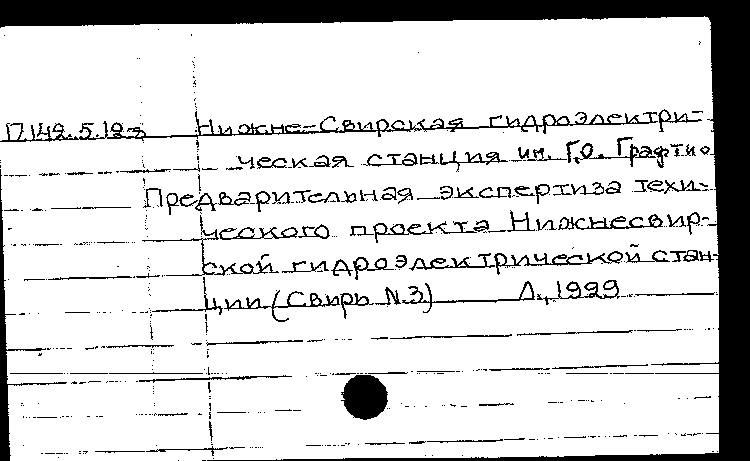 П.142.5.12-з Нижне-Свирская гидроэлектри-
ческая станция им. Г.О. Графтио
Предварительная экспертиза техни-
ческого проекта Нижнесвир-
ской гидроэлектрической стан-
ции (Свирь N.3) Л., 1929